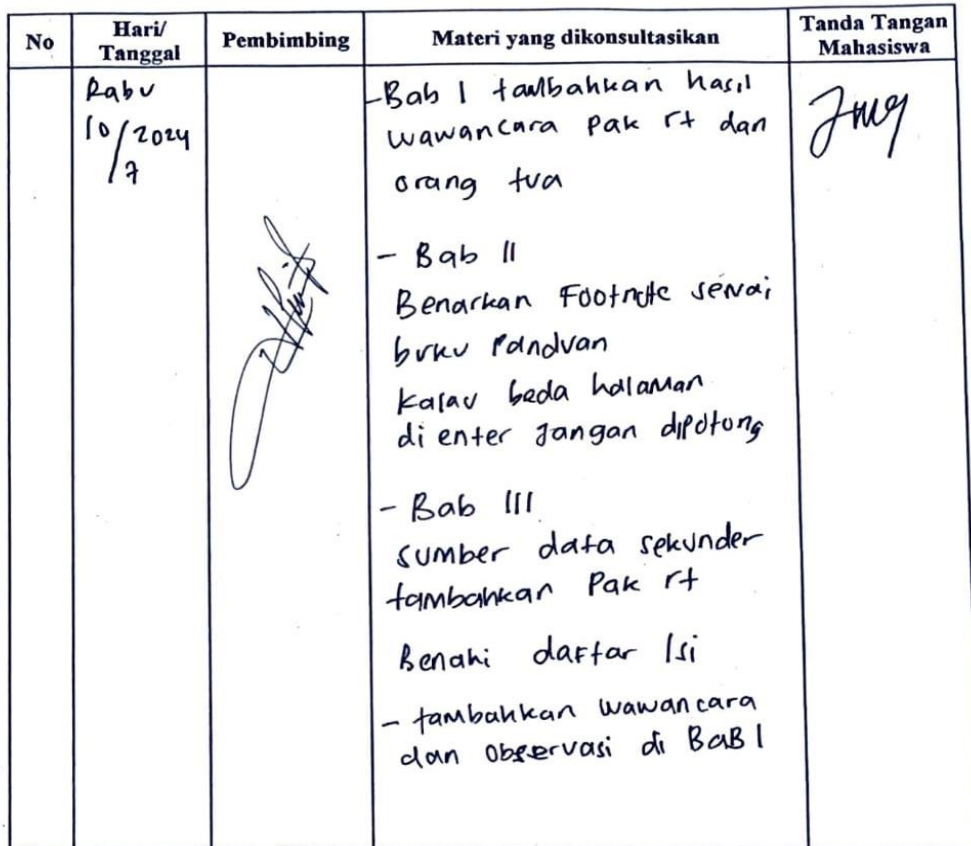 No
Hari/
Tanggal
Pembimbing
Materi yang dikonsultasikan
Tanda Tangan
Mahasiswa
Rabu
10/2024
/7
-Bab I tambahkan hasil
wawancara Pak rt dan
orang tua
- Bab II
Benarkan Footnote sesuai
buku Panduan
kalau beda halaman
di enter Jangan dipotong
- Bab III
sumber data sekunder
tambahkan Pak rt
Benahi daftar Isi
- tambahkan wawancara
dan Observasi di BaB I